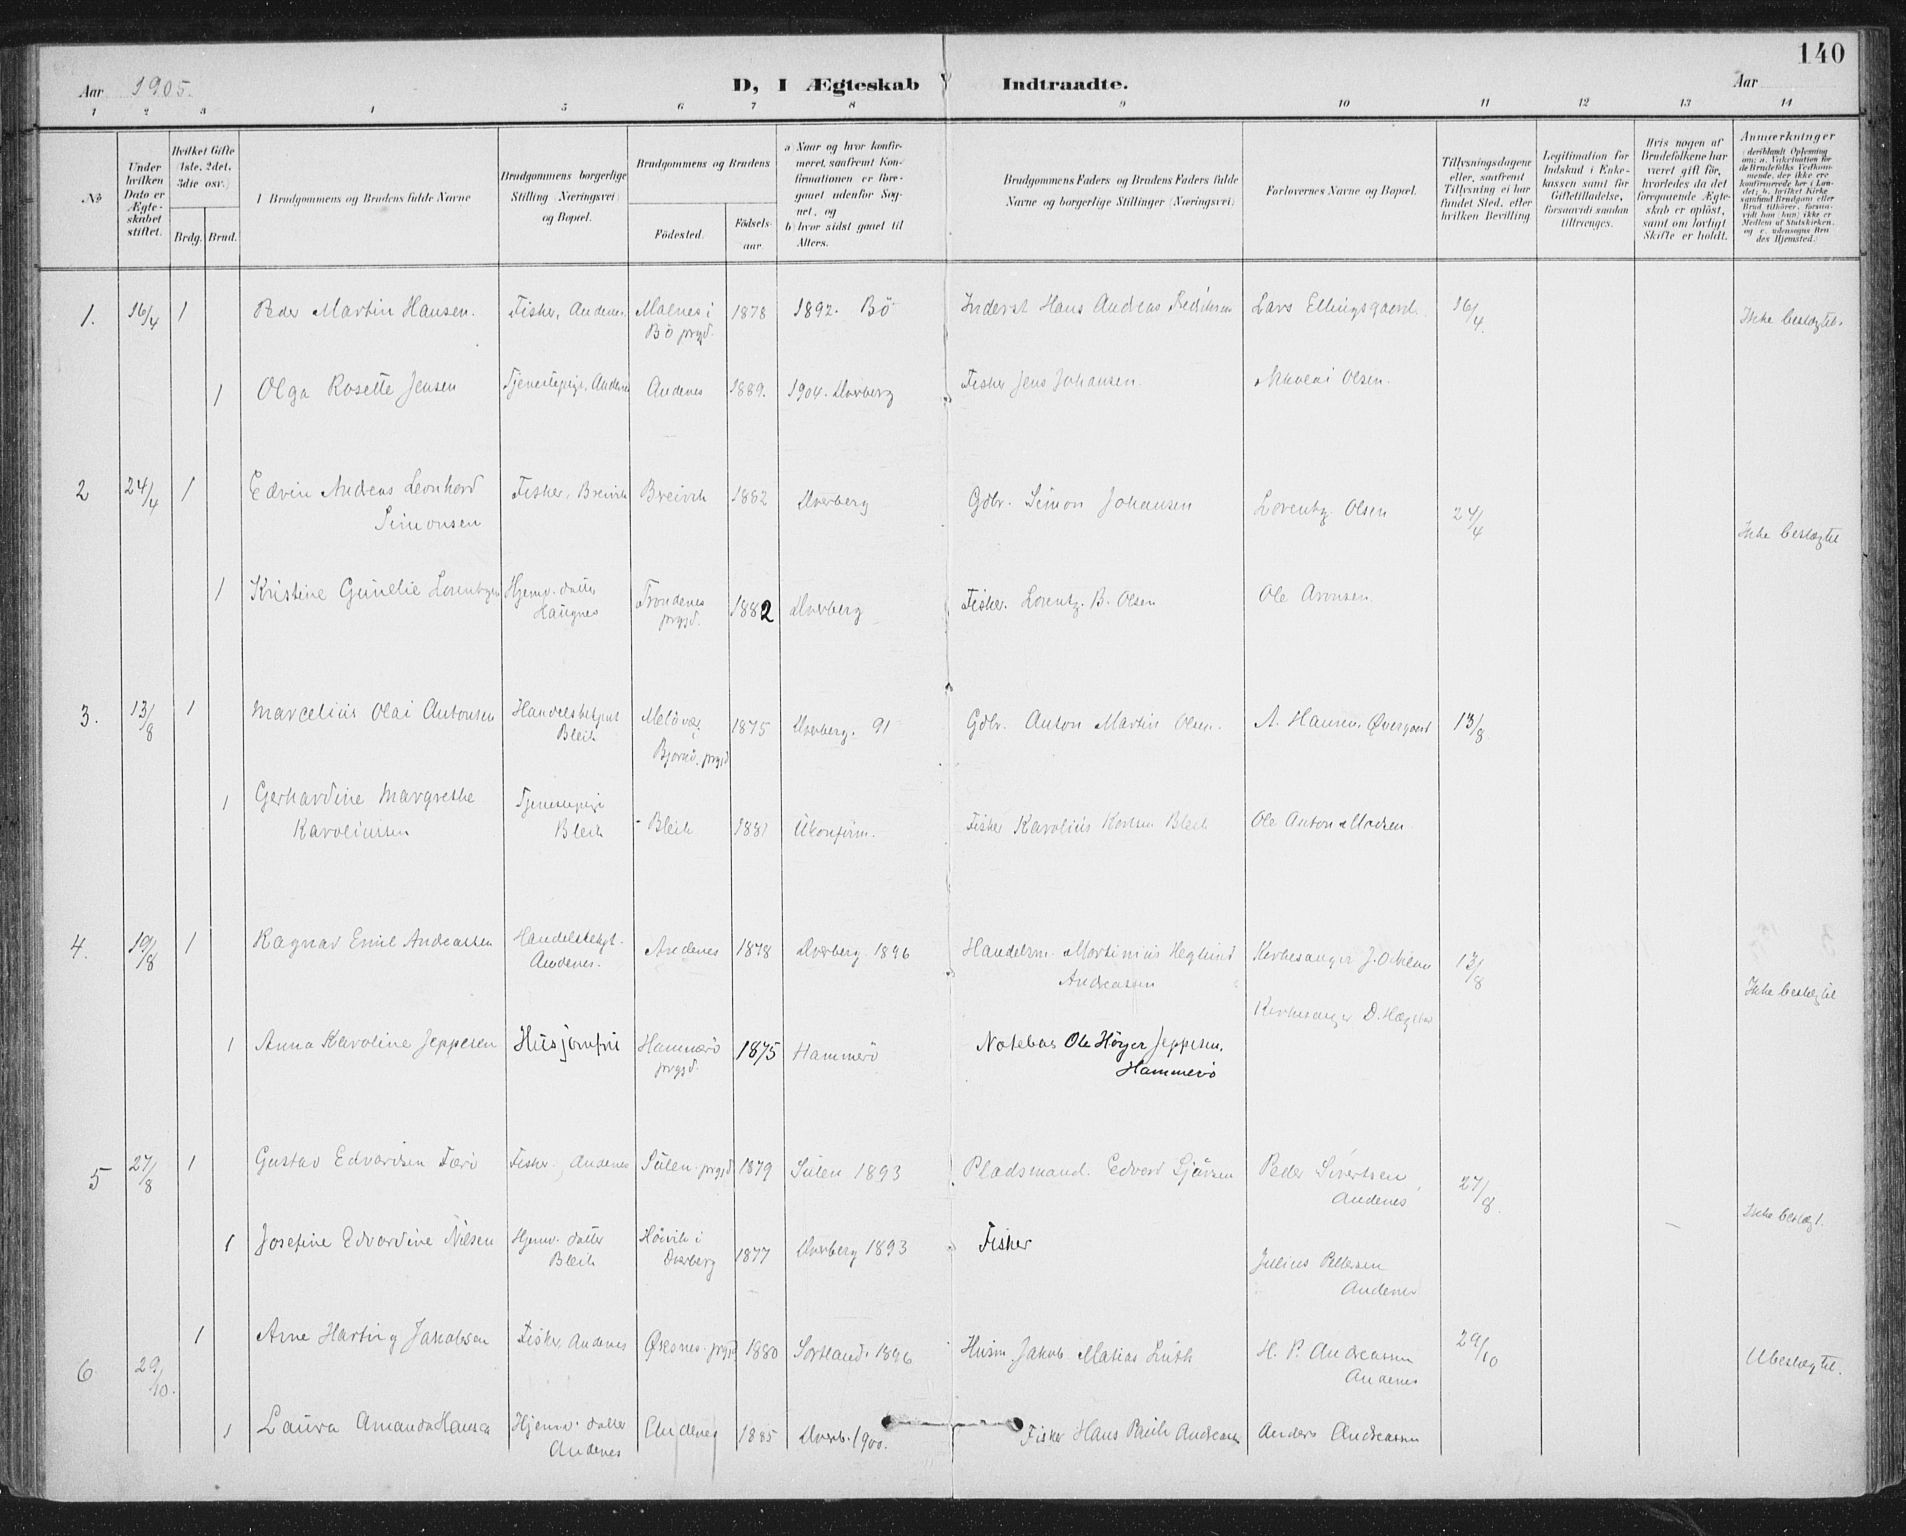 140
Aar 1905.
D, I Ægteskab Indtraadte.
Aar
1 2 3 4 5 6 7 8 9 10 11 12 13 14
No
Under hvilken Dato er Ægteskabet stiftet.
Hvilket Gifte (1ste, 2det, 3die osv.)
Brdg. Brud.
Brudgommens og Brudens fulde Navne
Brudgommens borgerlige Stilling (Næringsvei) og Bopæl.
Brudgommens og Brudens
Födested. Födselsaar.
a) Naar og hvor konfirmeret, saafremt Konfirmationen er foregaaet udenfor Sognet, og
b) hvor sidst gaaet til Alters.
Brudgommens Faders og Brudens Faders fulde Navne og borgerlige Stillinger (Næringsvei)
Forlovernes Navne og Bopæl.
Tillysningsdagene eller, saafremt Tillysning ei har fundet Sted, efter hvilken Bevilling
Legitimation for Indskud i Enkekassen samt for Giftetilladelse, forsaavidt saadan tiltrænges.
Hvis nogen af Brudefolkene har været gift før, hvorledes da det foregaaende Ægteskab er opløst, samt om lovligt Skifte er holdt.
Anmærkninger
1. 16/4 1 Peder Martin Hansen. Fisker, Andenes. Malnes i Bö prgjd. 1878 1892. Bö Inderst Hans Andreas Lars Ellingsgaard. 16/4. Ikke beslægtet.
1 Olga Rosette Jensen Tjenestepige, Andenes Andenes 1889. 1904. Dverberg Fisker Jens Johansen. Nikolai Olsen.
2 24/4 1 Edvin Andreas Leonhard Simonsen Fisker, Breivik Breivik 1882 Dverberg Gdbr. Simon Johansen Lorentz Olsen 24/4 Ikke beslægtet
1 Kristine Gunelie Lorentzen Hjemv. datter Haugnes Trondenes prgjd. 1882 Dverberg Fisker. Lorentz B. Olsen Ole Aronsen.
3. 13/8 1 Marcelius Olai Antonsen Handelsbetjent Bleik Melövær i prgjd 1875 Dverberg. 91 Gdbr. Anton Martin Olsen. A. Hansen, Øvergaard 13/8.
1 Gerhardine Margrethe Karoliussen Tjenestepige Bleik Bleik 1881 Ukonfirm. Fisker Karolius Karlsen Bleik Ole Anton Madsen.
4. 19/8 1 Ragnar Emil Andreassen Handelsbetjt. Andenes. Andenes 1878 Dverberg 1896 Handelsm. Martinius Heglund Andreassen Kirkesanger 13/8 Ikke beslægtet
Kirkesanger D.
1 Anna Karoline Jeppesen Husjomfru Hammerö prgjd. 1875 Hammerö Notebas Ole Höyer Jeppesen, Hammerö
5 27/8 1 Gustav Edvardsen Færö Fisker, Andenes Sulen prgjd 1879 Sulen 1893 Pladsmand Edvard Peder Sivertsen, Andenes 27/8. Ikke beslægt.
1 Josefine Edvardine Nilsen Hjemv. datter Bleik Höivik i Dverberg 1877 Dverberg 1893 Fisker Julius Pettersen Andenes
6 29/10. 1 Arne Harting Jakobsen Fisker, Andenes Øxsnes prgjd 1880 Sortland. 1896 Husm Jakob Matias Luth H. P. Andreassen Andenes 29/10 Ubeslægtet.
1 Laura Amanda Hansen Hjemv. datter Andenes Andenes 1885 Dverb. 1900. Fisker Hans Paulk Andreassen Anders Andreassen